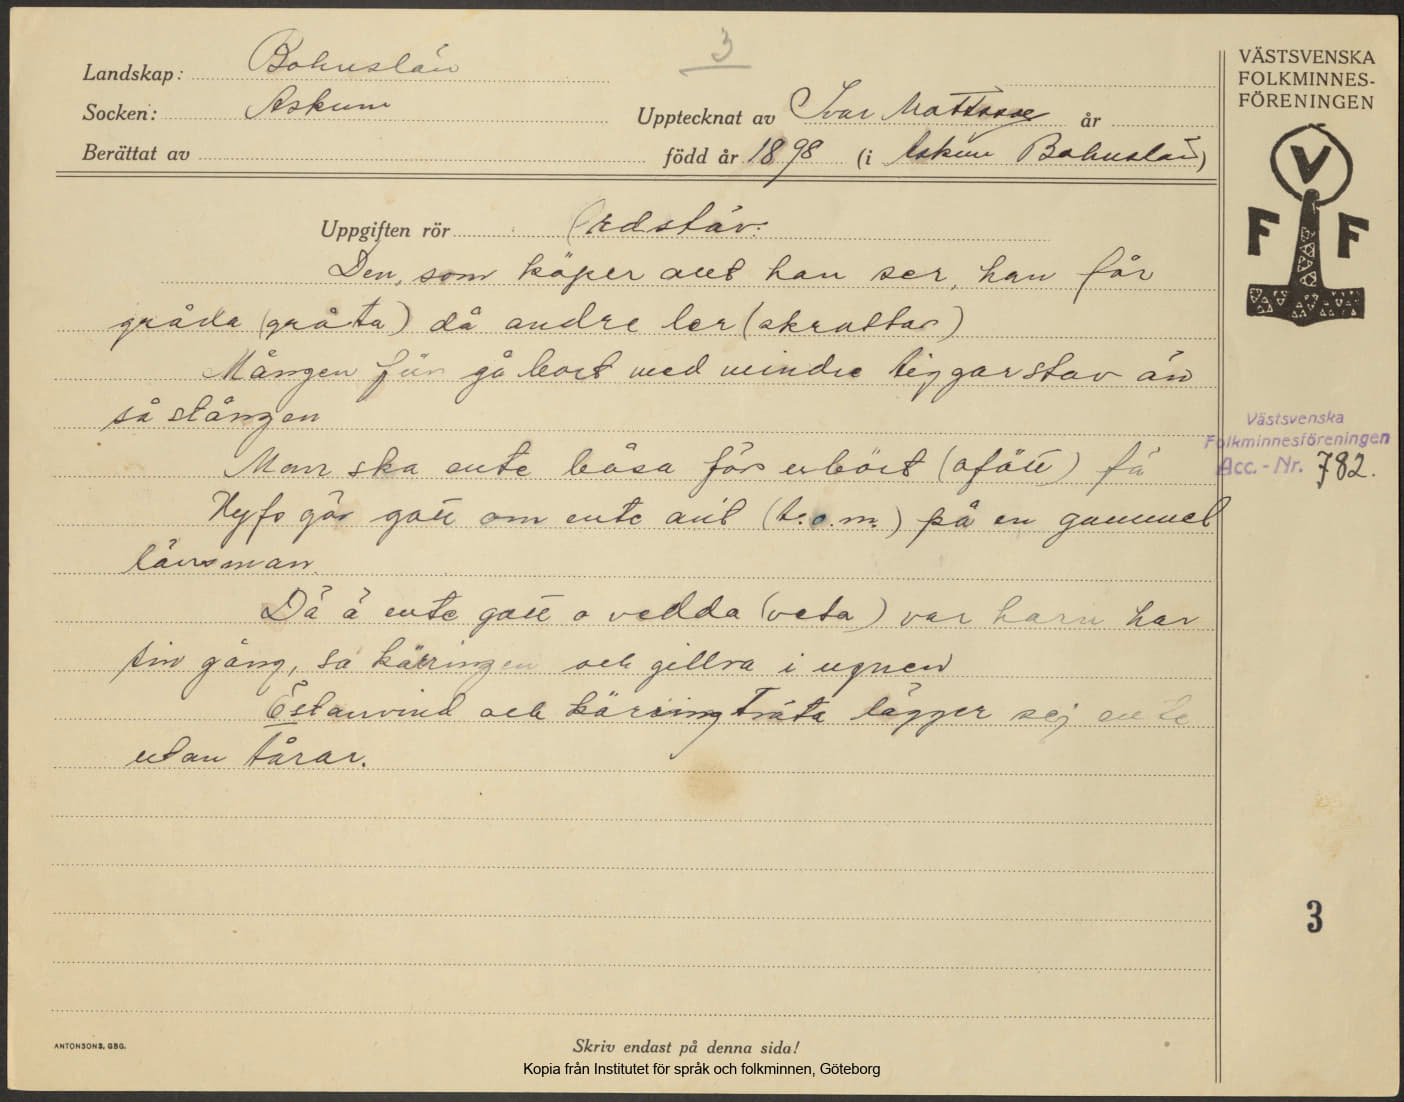 3
Landskap: Bohuslän
Socken: Askum
Upptecknat av Ivar Mattsson år
Berättat av
född år 1898 (i Askum Bohuslän)
Uppgiften rör Ordstäv.
Den, som köper allt han ser, han får
gråda (gråta) då andre ler (skrattar)
Mången får gå bort med mindre tiggarstav än
så stången
Man ska ente båsa för enbört (ofött) få
Nyfs går gott om ente allt (t.o.m.) på en gammel
länsman.
Då å ente gott o vedda (veta) var haru har
sin gång, sa kärringen och gillra i ugnen
Östanvind och kärringträta lägger sej ente
utan tårar.
VÄSTSVENSKA
FOLKMINNES-
FÖRENINGEN
V
F F
Västsvenska
Folkminnesföreningen
Acc.-Nr. 782.
3
ANTONSONS, GBG.
Skriv endast på denna sida!
Kopia från Institutet för språk och folkminnen, Göteborg